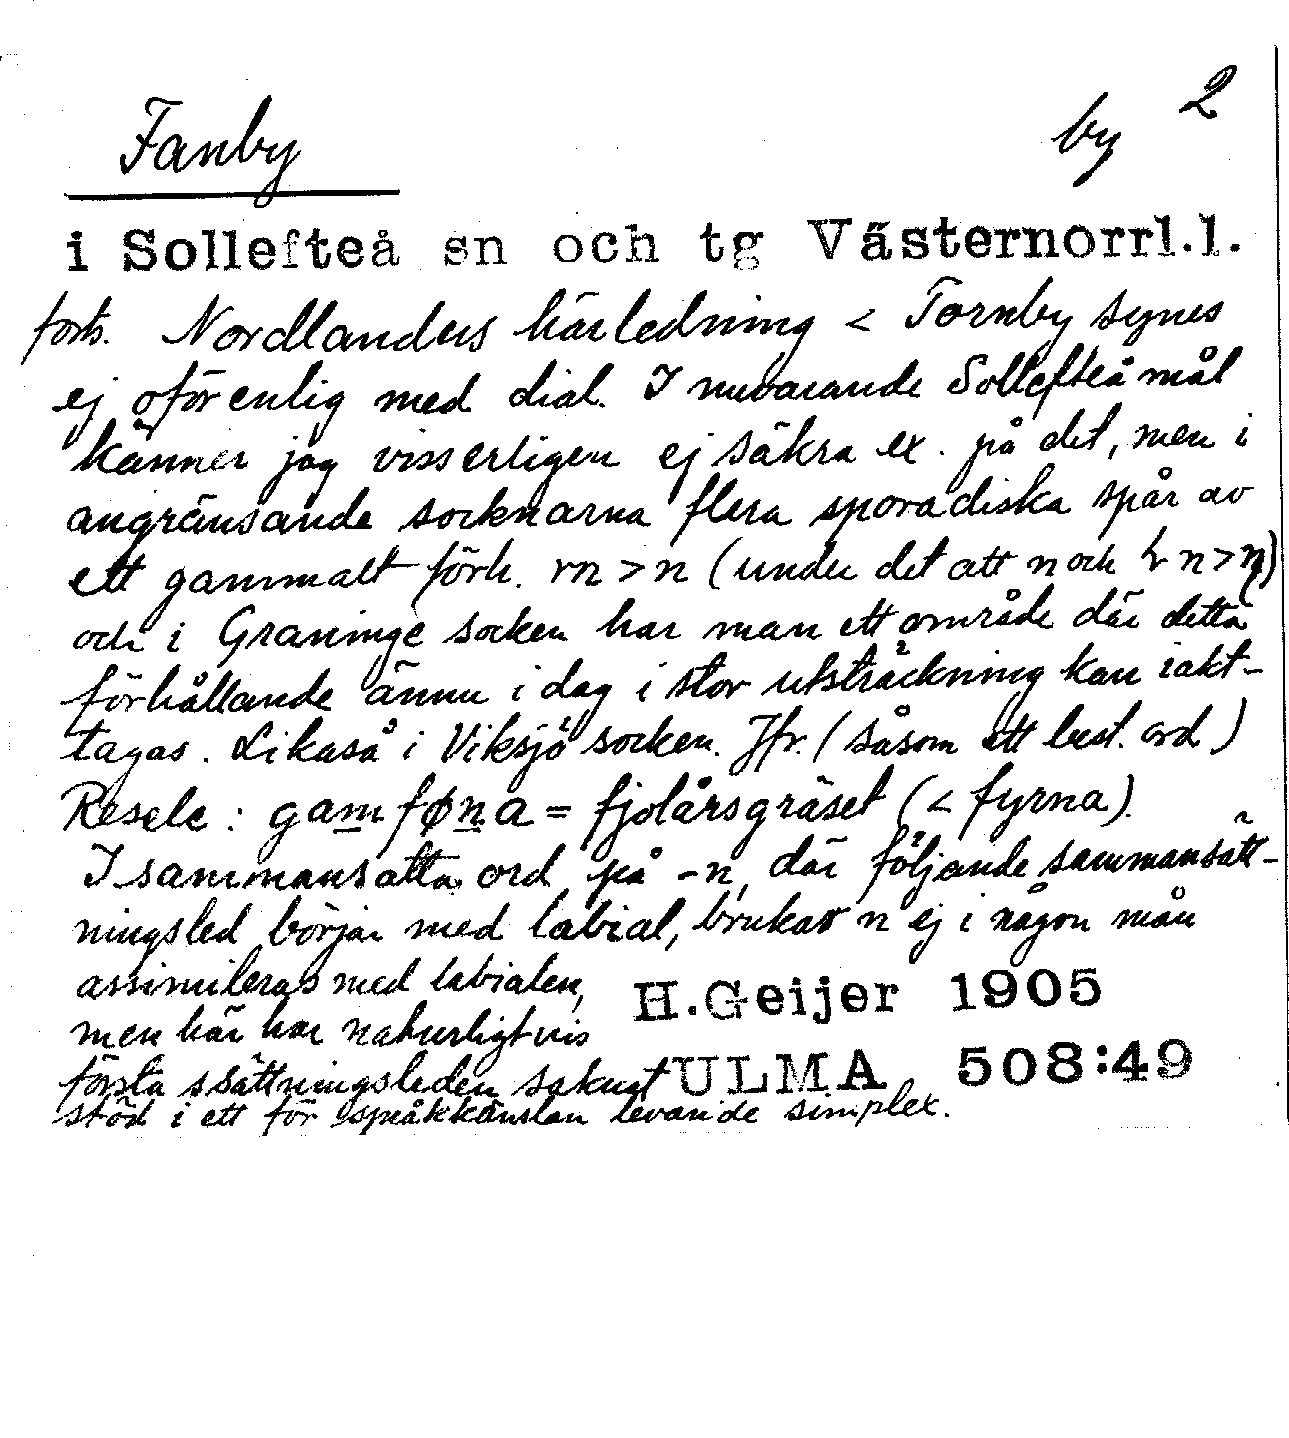 Fanby by 2
i Sollefteå sn och tg Västernorrl.l.
forts. Nordlanders härledning < Tornby synes
ej oförenlig med dial. I nuvarande Sollefteåmål
känner jag visserligen ej säkra ex. på det, men i
angränsande socknarna flera sporadiska spår av
ett gammalt förh. rn > n (under det att n och ɽn > ṇ)
och i Graninge socken har man ett område där detta
förhållande ännu i dag i stor utsträckning kan iakt-
tagas. Likaså i Viksjö socken. Jfr. (såsom ett best. ord)
Resele: gamføna = fjolårsgräset (< fyrna).
I sammansatta ord på -n, där följande sammansätt-
ningsled börjar med labial, brukar n ej i någon mån
assimileras med labialen,
men här har naturligtvis
första ssättningsleden saknat
stöd i ett för språkkänslan levande simplex.
H.Geijer 1905
ULMA 508:49